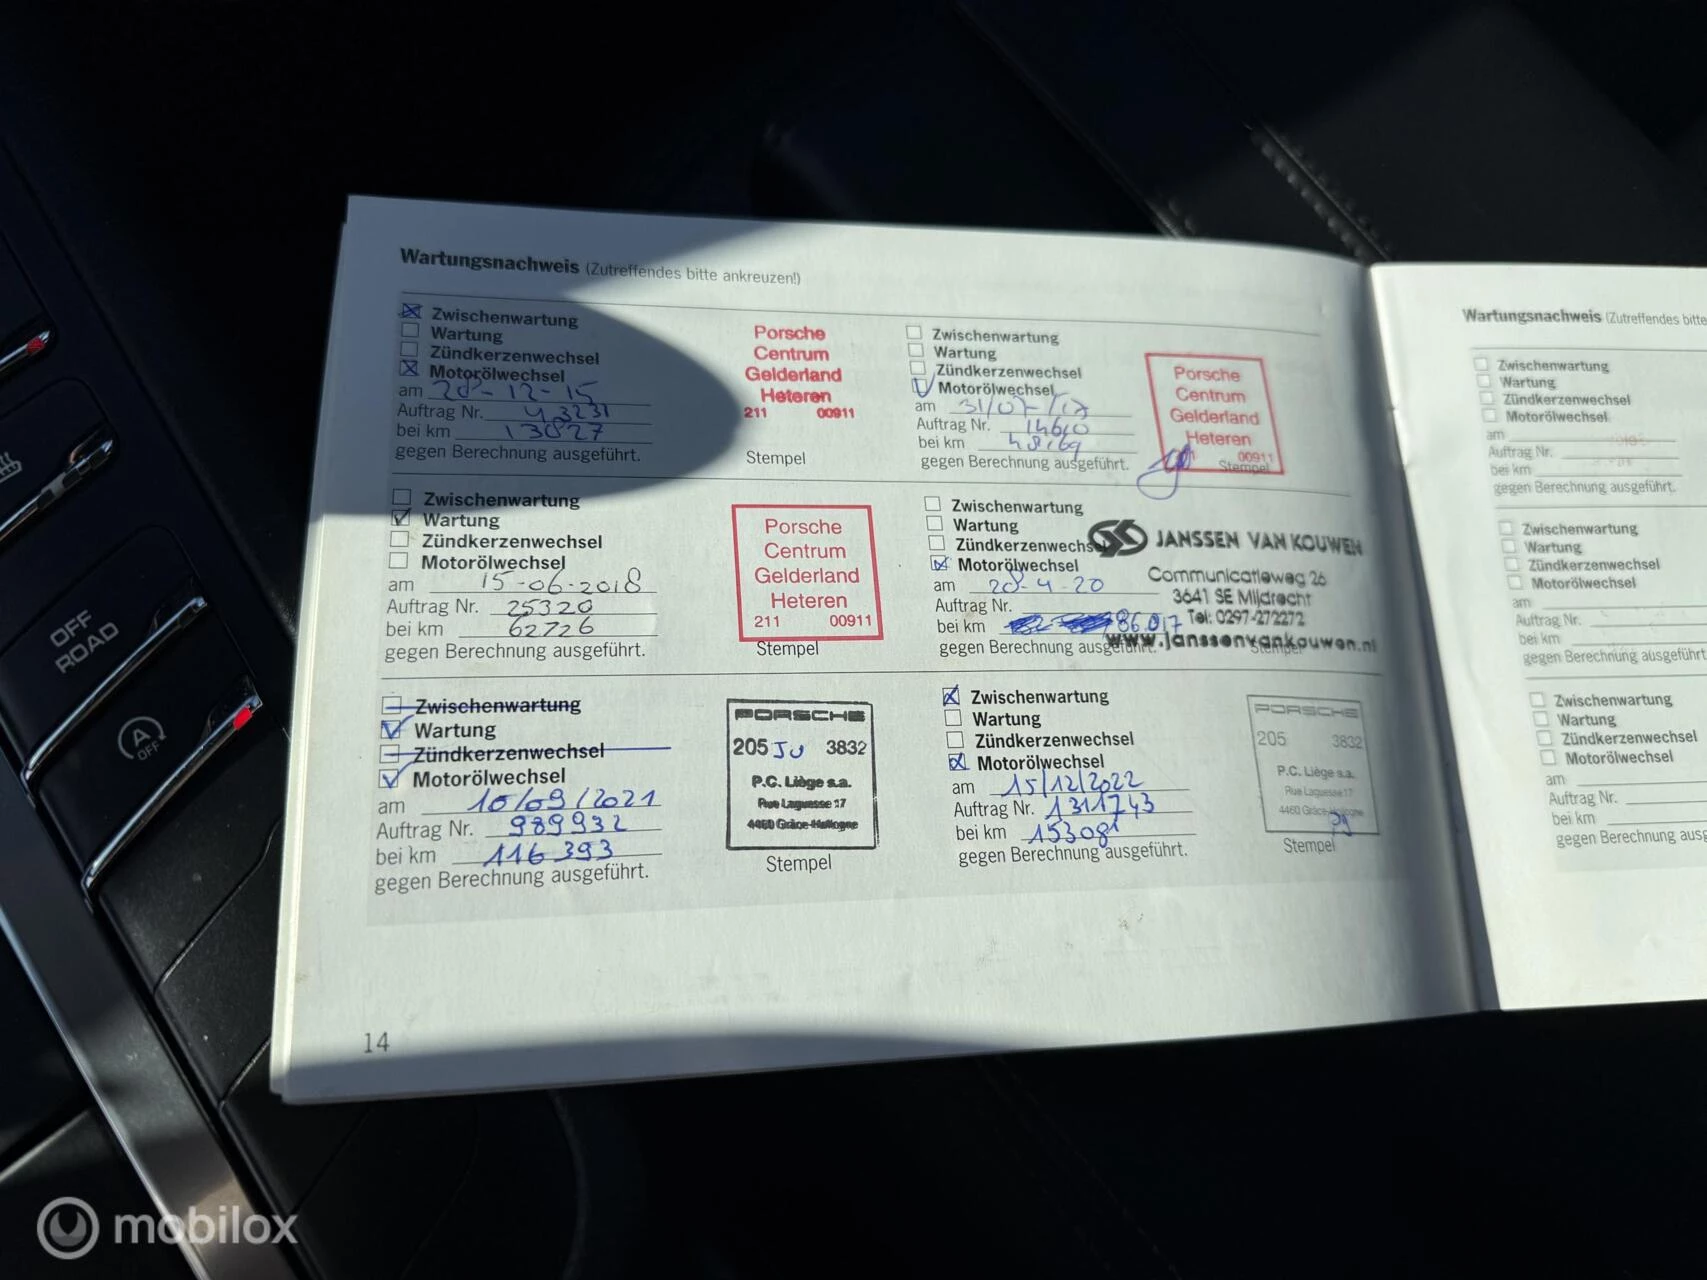 Wartungsnachweis (Zutreffendes bitte ankreuzen!)
Zwischenwartung
Wartung
Zündkerzenwechsel
Motorölwechsel
am 28-12-15
Auftrag Nr. 43231
bei km 13027
gegen Berechnung ausgeführt.
Porsche
Centrum
Gelderland
Heteren
211 00911
Stempel
Zwischenwartung
Wartung
Zündkerzenwechsel
Motorölwechsel
am 31/07/17
Auftrag Nr. 14610
bei km 48169
gegen Berechnung ausgeführt.
Porsche
Centrum
Gelderland
Heteren
00911
Stempel
Zwischenwartung
Wartung
Zündkerzenwechsel
Motorölwechsel
am 15-06-2018
Auftrag Nr. 25320
bei km 62726
gegen Berechnung ausgeführt.
Porsche
Centrum
Gelderland
Heteren
211 00911
Stempel
Zwischenwartung
Wartung
Zündkerzenwechsel
Motorölwechsel
am 28-4-20
Auftrag Nr.
bei km 86.017
gegen Berechnung ausgeführt.
JANSSEN VAN KOUWEN
Communicatieweg 26
3641 SE Mijdrecht
Tel: 0297-272272
www.janssenvankouwen.nl
Stempel
Zwischenwartung
Wartung
Zündkerzenwechsel
Motorölwechsel
am 10/09/2021
Auftrag Nr. 989932
bei km 116 393
gegen Berechnung ausgeführt.
PORSCHE
205 JU 3832
P.C. Liège s.a.
Rue Laguesse 17
4460 Grâce-Hollogne
Stempel
Zwischenwartung
Wartung
Zündkerzenwechsel
Motorölwechsel
am 15/12/2022
Auftrag Nr. 1311743
bei km 153081
gegen Berechnung ausgeführt.
PORSCHE
205 3832
P.C. Liège s.a.
Rue Laguesse 17
4460 Grâce-Hollogne
Stempel
14
Wartungsnachweis (Zutreffendes bitte
Zwischenwartung
Wartung
Zündkerzenwechsel
Motorölwechsel
am
Auftrag Nr.
bei km
gegen Berechnung ausgeführt.
Zwischenwartung
Wartung
Zündkerzenwechsel
Motorölwechsel
am
Auftrag Nr.
bei km
gegen Berechnung ausgeführt
Zwischenwartung
Wartung
Zündkerzenwechsel
Motorölwechsel
am
Auftrag Nr.
bei km
gegen Berechnung ausg
OFF
ROAD
A
OFF
mobilox